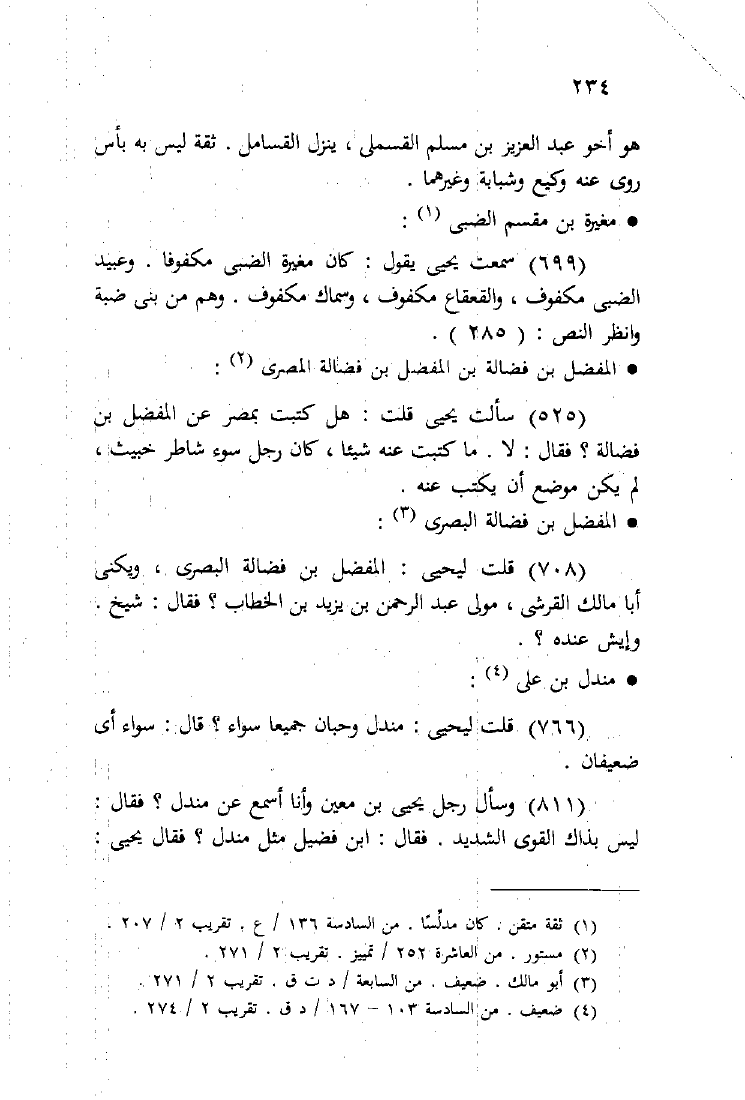 ٢٣٤
هو أخو عبد العزيز بن مسلم القسملى ، ينزل القسامل . ثقة ليس به بأس
روى عنه وكيع وشبابة وغيرهما .
● مغيرة بن مقسم الضبى (١) :
(٦٩٩) سمعت يحيى يقول : كان مغيرة الضبى مكفوفا . وعبيد
الضبى مكفوف ، والقعقاع مكفوف ، وسماك مكفوف . وهم من بنى ضبة
وانظر النص : ( ٢٨٥ ) .
● المفضل بن فضالة بن المفضل بن فضالة المصرى (٢) :
(٥٢٥) سألت يحيى قلت : هل كتبت بمصر عن المفضل بن
فضالة ؟ فقال : لا . ما كتبت عنه شيئا ، كان رجل سوء شاطر خبيث ،
لم يكن موضع أن يكتب عنه .
● المفضل بن فضالة البصرى (٣) :
(٧٠٨) قلت ليحيى : المفضل بن فضالة البصرى ، ويكنى
أبا مالك القرشى ، مولى عبد الرحمن بن يزيد بن الخطاب ؟ فقال : شيخ .
وإيش عنده ؟ .
● مندل بن على (٤) :
(٧٦٦) قلت ليحيى : مندل وحبان جميعا سواء ؟ قال : سواء أى
ضعيفان .
(٨١١) وسأل رجل يحيى بن معين وأنا أسمع عن مندل ؟ فقال :
ليس بذاك القوى الشديد . فقال : ابن فضيل مثل مندل ؟ فقال يحيى :
(١) ثقة متقن . كان مدلّسًا . من السادسة ١٣٦ / ع . تقريب ٢ / ٢٠٧ .
(٢) مستور . من العاشرة ٢٥٢ / تمييز . تقريب ٢ / ٢٧١ .
(٣) أبو مالك . ضعيف . من السابعة / د ت ق . تقريب ٢ / ٢٧١ .
(٤) ضعيف . من السادسة ١٠٣ – ١٦٧ / د ق . تقريب ٢ / ٢٧٤ .